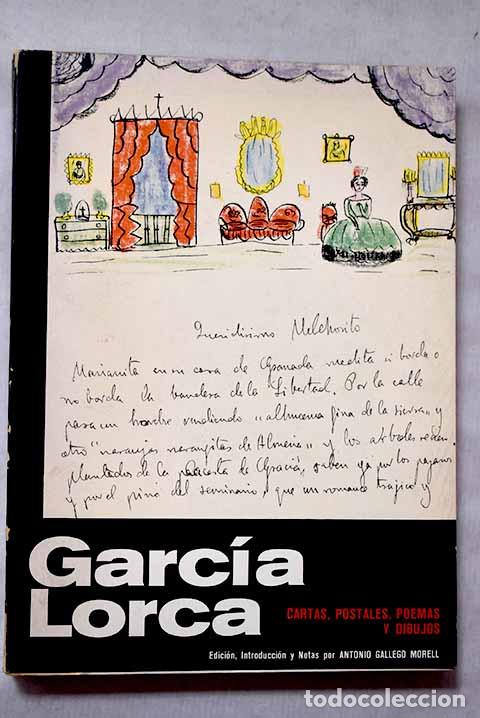 Queridisimo Melchorito
Marianita en su casa de Granada medita si borda o
no borda la bandera de la Libertad. Por la calle
pasa un hombre vendiendo "alhucema fina de la sierra" y
otro "naranjas naranjitas de Almeria" y los arboles recien
plantados de la placeta de Gracia, saben ya por los pajaros
y por el pino del seminario, que un romance trájico y
García
Lorca
CARTAS, POSTALES, POEMAS
Y DIBUJOS
Edición, Introducción y Notas por ANTONIO GALLEGO MORELL
todocoleccion